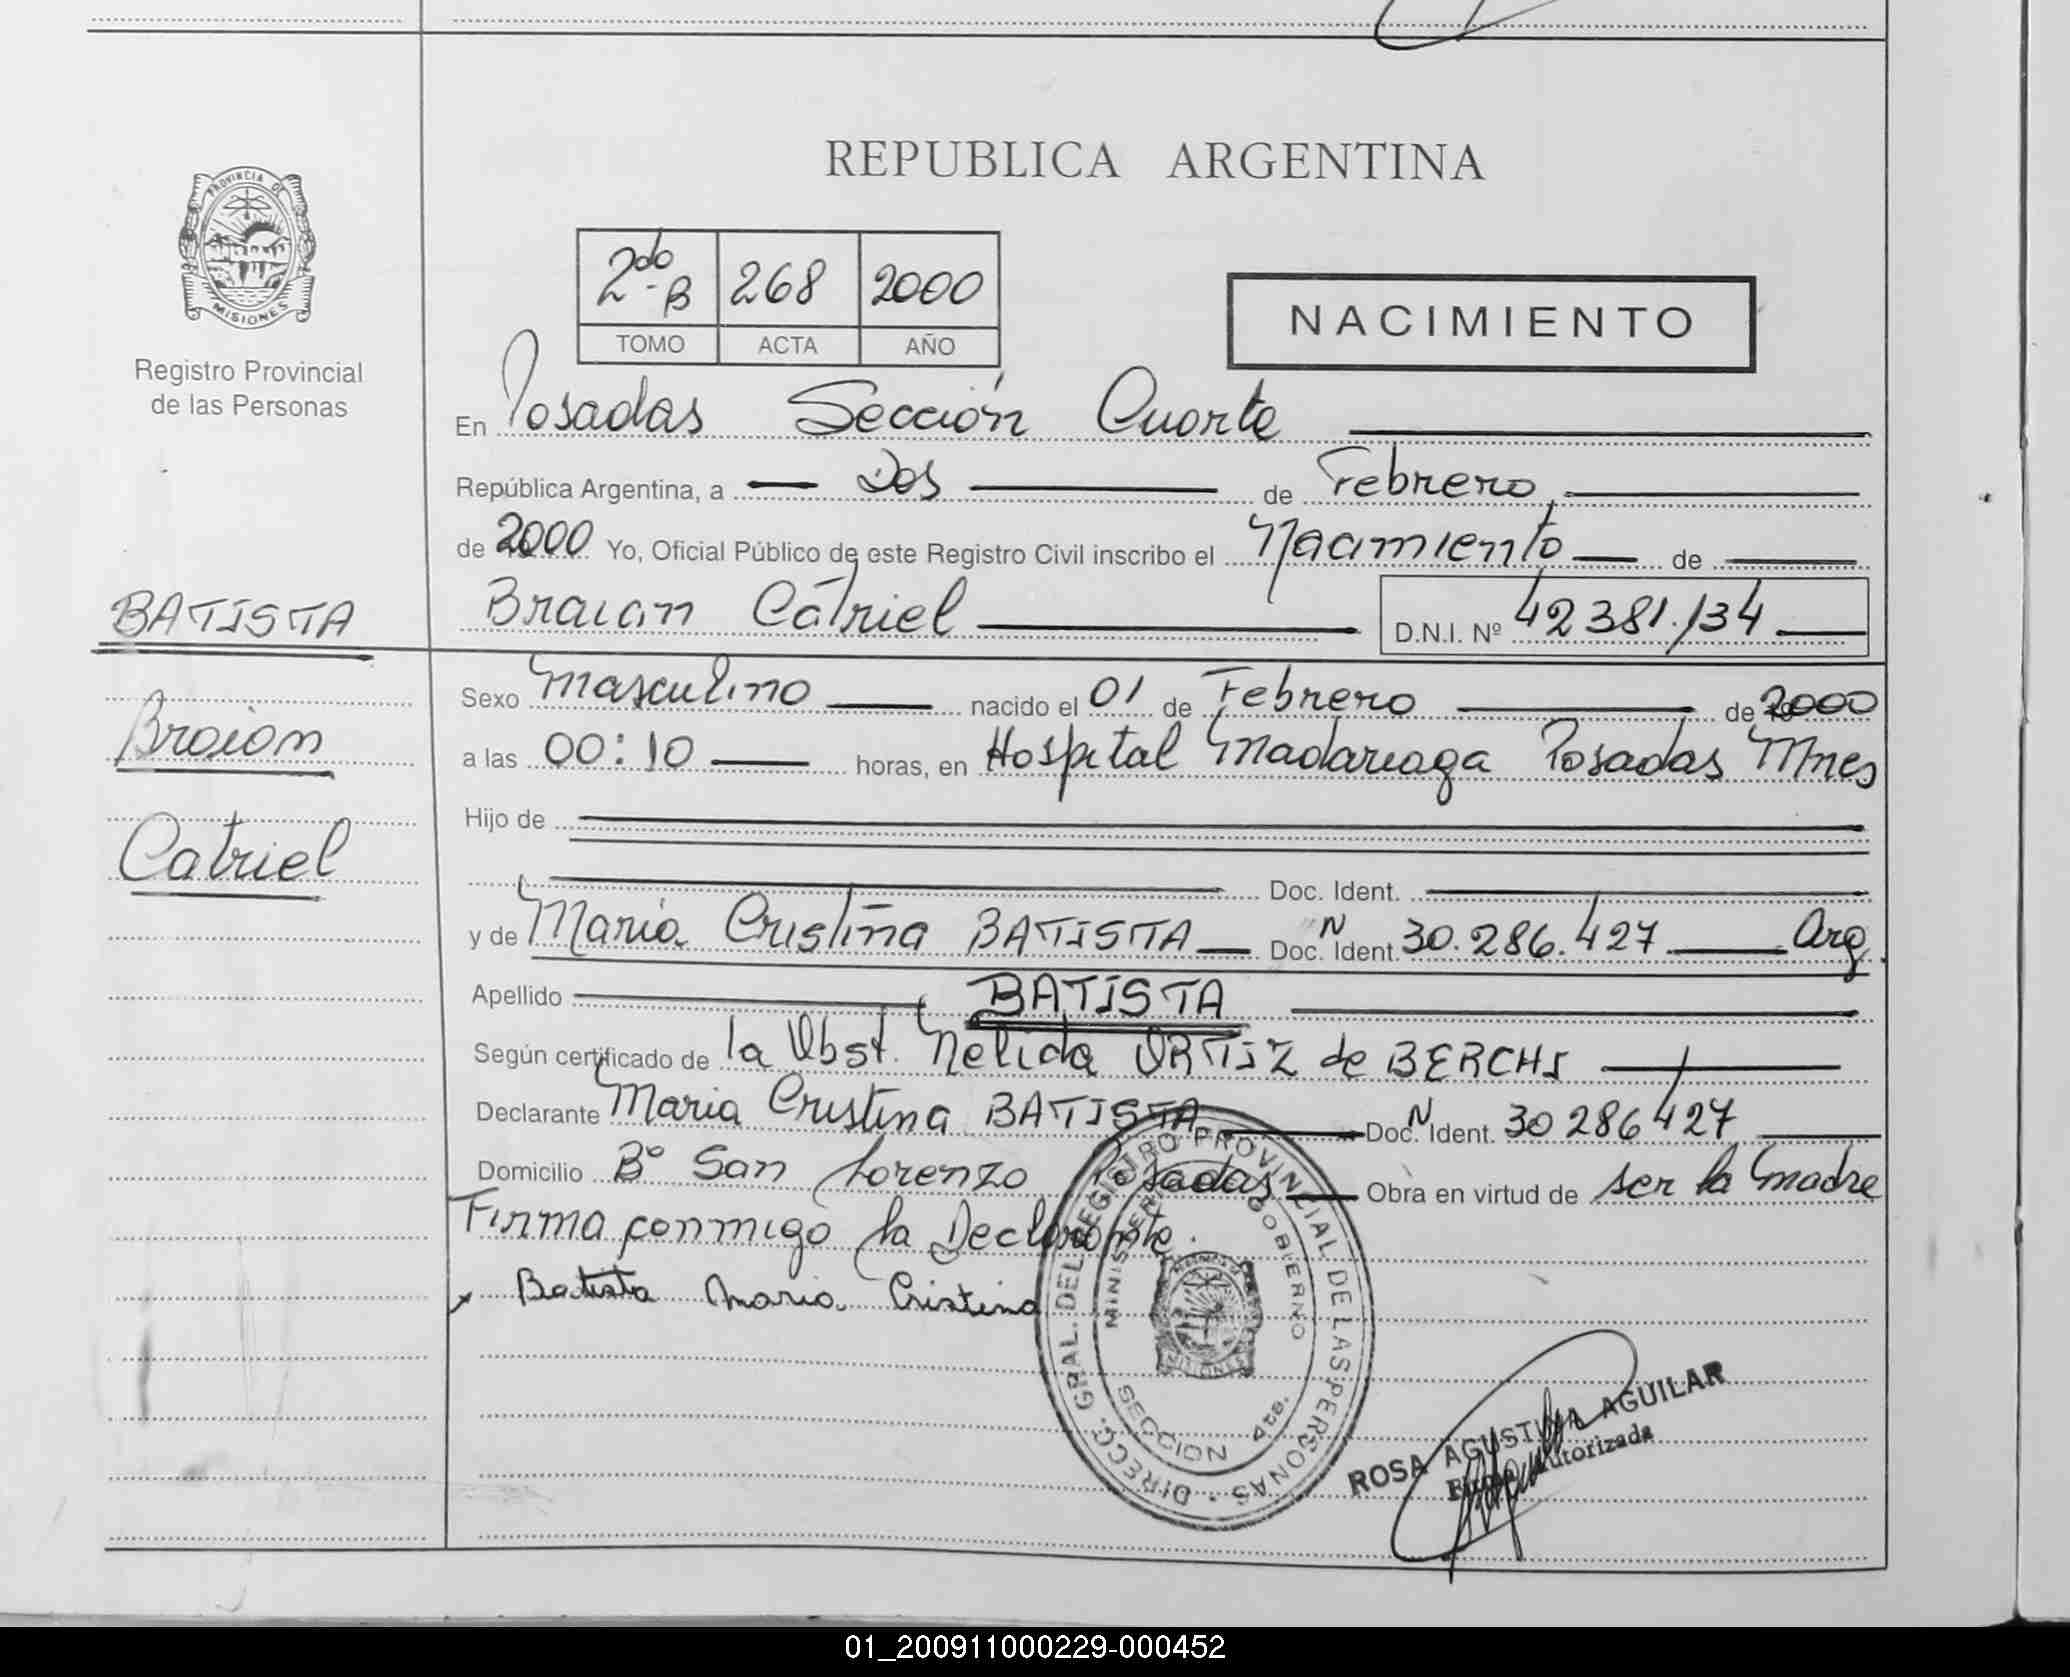 REPUBLICA ARGENTINA
PROVINCIA DE
MISIONES
Registro Provincial
de las Personas
2do - B 268 2000
TOMO ACTA AÑO
NACIMIENTO
En Posadas Sección Cuarta
República Argentina, a Dos de Febrero
de 2000 Yo, Oficial Público de este Registro Civil inscribo el Nacimiento de
BATISTA
Braian Catriel D.N.I. Nº 42381.134
Sexo Masculino nacido el 01 de Febrero de 2000
Braian
a las 00:10 horas, en Hospital Madariaga Posadas Mnes
Hijo de
Catriel
Doc. Ident.
y de Maria Cristina BATISTA Doc. N Ident. 30.286.427 Arg.
Apellido BATISTA
Según certificado de la Obst. Nelida ORTIZ de BERCHI
Declarante Maria Cristina BATISTA Doc. N Ident. 30 286 427
Domicilio Bº San Lorenzo Posadas Obra en virtud de ser la madre
Firma conmigo la Declarante.
Batista Maria Cristina
DIRECC. GRAL. DEL REGISTRO PROVINCIAL DE LAS PERSONAS
MINISTERIO GOBIERNO
MISIONES
SECCION 4ta.
ROSA AGUSTINA AGUILAR
Firma Autorizada
01_200911000229-000452